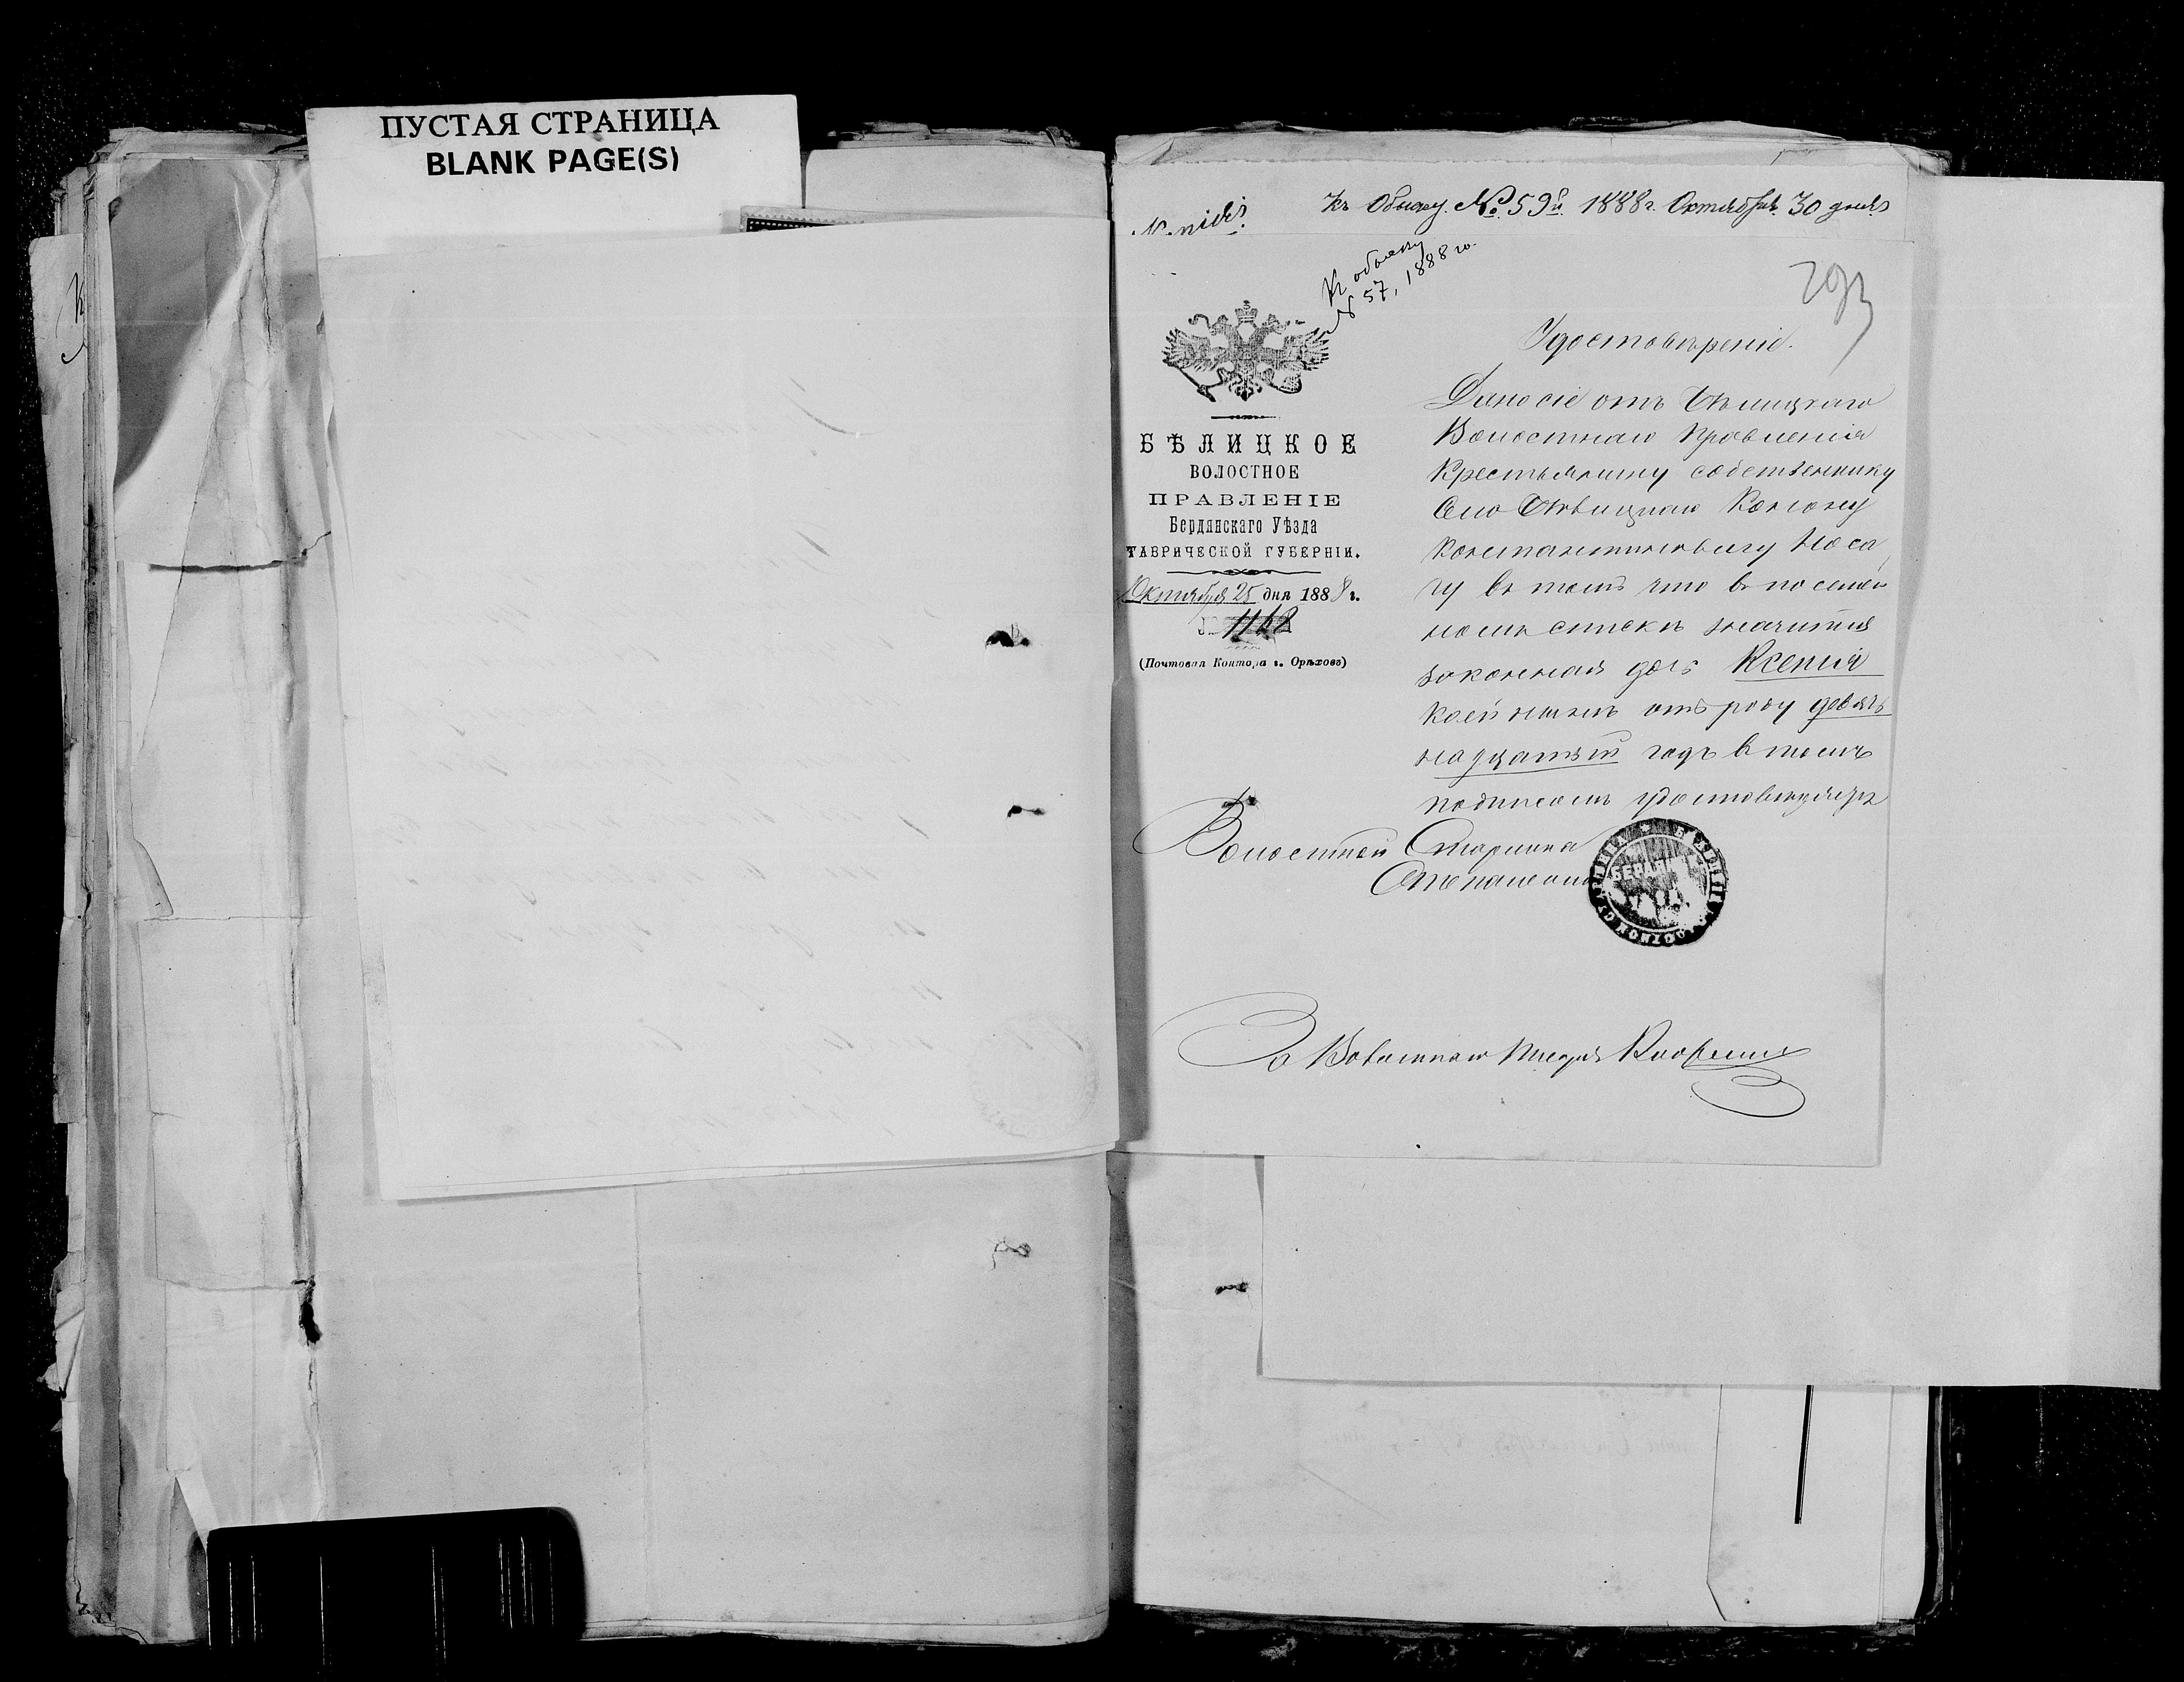 ПУСТАЯ СТРАНИЦА
BLANK PAGE(S)
Къ Обыску. №. 59й. 1888 г. Октября. 30 дня.
Къ обыску
№ 57, 1888 го.
293
БѢЛИЦКОЕ
ВОЛОСТНОЕ
ПРАВЛЕНІЕ
Бердянскаго Уѣзда
ТАВРИЧЕСКОЙ ГУБЕРНІИ.
Октября 25 дня 1888 г.
(Почтовая Контора г. Орѣховъ)
Удостовѣреніе.
Дано сіе отъ Бѣлицкаго
Волостнаго Правленія
Крестьянину собственнику
Село Бѣлицкаго
Константиновичу Носа
чу въ томъ что въ посемей
номъ спискѣ значится
законная дочь Ксенія
коей нынѣ отъ роду девять
надцатый годъ въ томъ
подписомъ удостовѣряетъ
Волостной Старшина
За Волостнаго Писаря